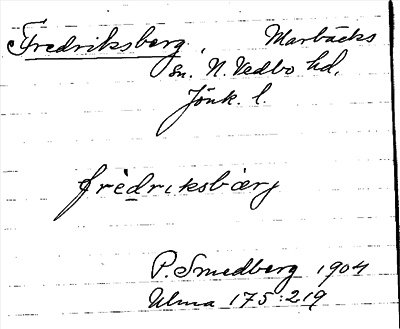 Fredriksberg, Marbäcks
sn. N. Vedbo hd.
Jönk. l.
frèdriksbærj
P. Smedberg 1904
Ulma 175:219